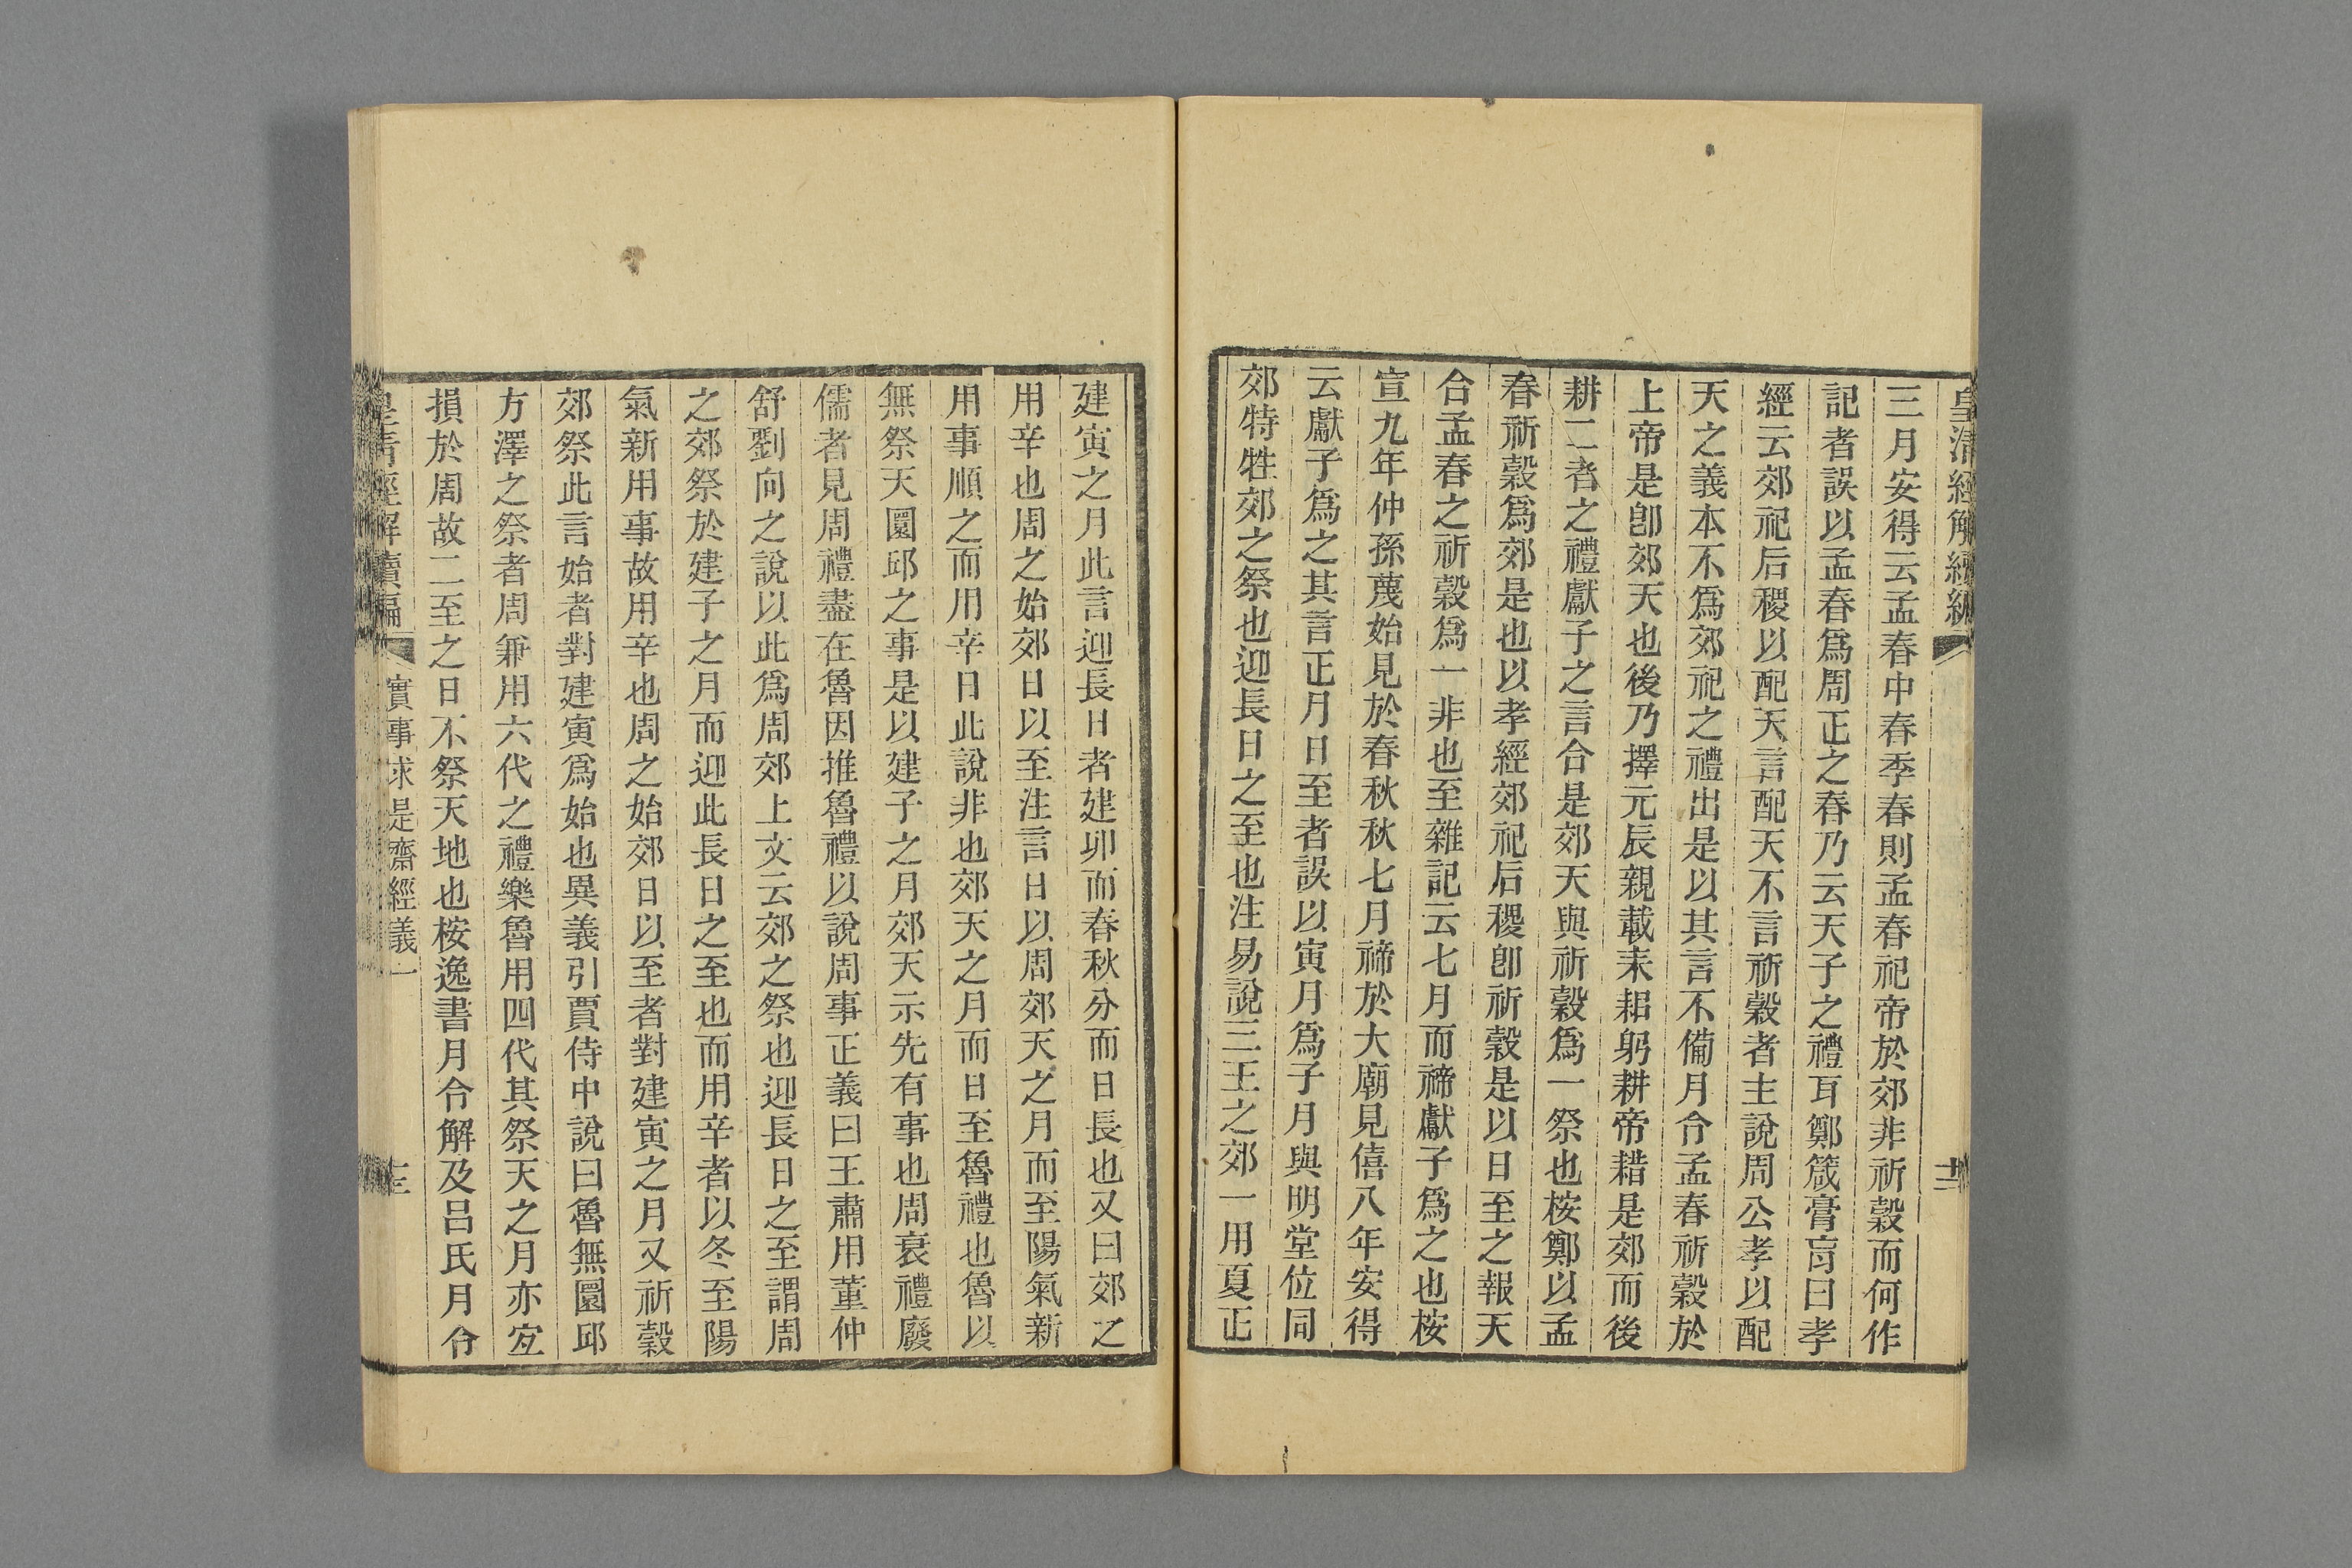 皇清經解續編
十二
三月安得云孟春中春季春則孟春祀帝於郊非祈穀而何作
記者誤以孟春爲周正之春乃云天子之禮耳鄭箴膏肓曰孝
經云郊祀后稷以配天言配天不言祈穀者主說周公孝以配
天之義本不爲郊祀之禮出是以其言不備月令孟春祈穀於
上帝是卽郊天也後乃擇元辰親載耒耜躬耕帝耤是郊而後
耕二者之禮獻子之言合是郊天與祈穀爲一祭也桉鄭以孟
春祈穀爲郊是也以孝經郊祀后稷卽祈穀是以日至之報天
合孟春之祈穀爲一非也至雜記云七月而禘獻子爲之也桉
宣九年仲孫蔑始見於春秋秋七月禘於大廟見僖八年安得
云獻子爲之其言正月日至者誤以寅月爲子月與明堂位同
郊特牲郊之祭也迎長日之至也注易說三王之郊一用夏正
建寅之月此言迎長日者建卯而春秋分而日長也又曰郊之
用辛也周之始郊日以至注言日以周郊天之月而至陽氣新
用事順之而用辛日此說非也郊天之月而日至魯禮也魯以
無祭天圜邱之事是以建子之月郊天示先有事也周衰禮廢
儒者見周禮盡在魯因推魯禮以說周事正義曰王肅用董仲
舒劉向之說以此爲周郊上文云郊之祭也迎長日之至謂周
之郊祭於建子之月而迎此長日之至也而用辛者以冬至陽
氣新用事故用辛也周之始郊日以至者對建寅之月又祈穀
郊祭此言始者對建寅爲始也異義引賈侍中說曰魯無圜邱
方澤之祭者周兼用六代之禮樂魯用四代其祭天之月亦宜
損於周故二至之日不祭天地也桉逸書月令解及呂氏月令
皇清經解續編
實事求是齋經義一
十三